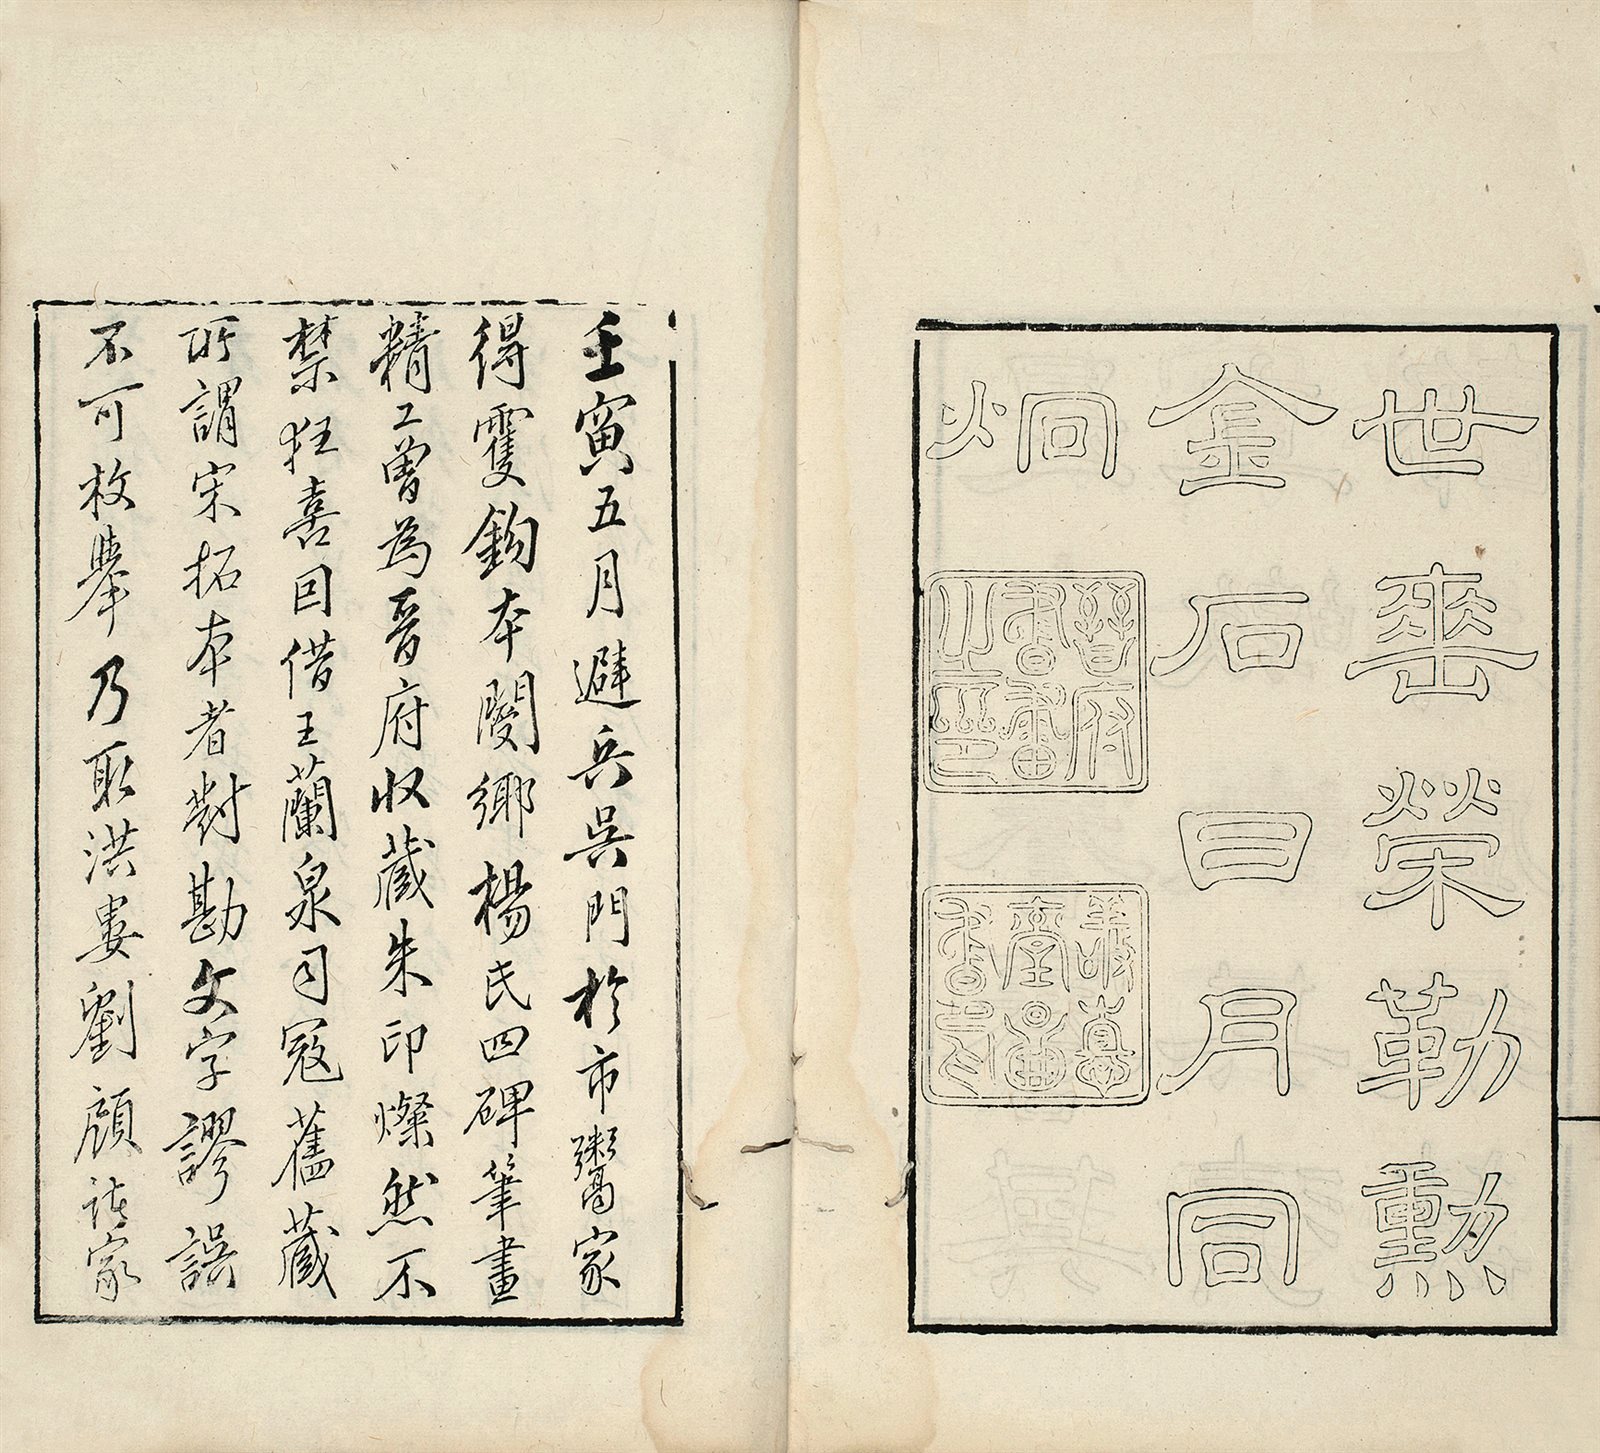 世華榮勒勳
金石日月同
炯
晉府書畫之印
敬德堂圖書印
壬寅五月避兵吳門於市鬻家
得雙鉤本閿鄉楊氏四碑筆畫
精工曾為晉府收藏朱印燦然不
禁狂喜因借王蘭泉司寇舊藏
所謂宋拓本者對勘文字謬誤
不可枚舉乃取洪婁劉顧諸家